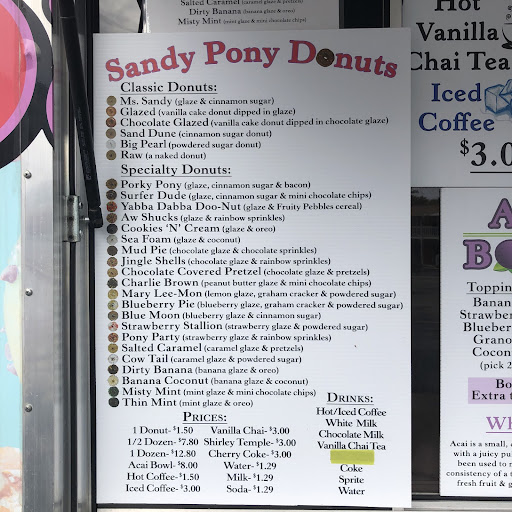 Salted Caramel (caramel glaze & pretzels)
Dirty Banana (banana glaze & oreo)
Misty Mint (mint glaze & mini chocolate chips)
Sandy Pony Donuts
Classic Donuts:
Ms. Sandy (glaze & cinnamon sugar)
Glazed (vanilla cake donut dipped in glaze)
Chocolate Glazed (vanilla cake donut dipped in chocolate glaze)
Sand Dune (cinnamon sugar donut)
Big Pearl (powdered sugar donut)
Raw (a naked donut)
Specialty Donuts:
Porky Pony (glaze, cinnamon sugar & bacon)
Surfer Dude (glaze, cinnamon sugar & mini chocolate chips)
Yabba Dabba Doo-Nut (glaze & Fruity Pebbles cereal)
Aw Shucks (glaze & rainbow sprinkles)
Cookies 'N' Cream (glaze & oreo)
Sea Foam (glaze & coconut)
Mud Pie (chocolate glaze & chocolate sprinkles)
Jingle Shells (chocolate glaze & rainbow sprinkles)
Chocolate Covered Pretzel (chocolate glaze & pretzels)
Charlie Brown (peanut butter glaze & mini chocolate chips)
Mary Lee-Mon (lemon glaze, graham cracker & powdered sugar)
Blueberry Pie (blueberry glaze, graham cracker & powdered sugar)
Blue Moon (blueberry glaze & cinnamon sugar)
Strawberry Stallion (strawberry glaze & powdered sugar)
Pony Party (strawberry glaze & rainbow sprinkles)
Salted Caramel (caramel glaze & pretzels)
Cow Tail (caramel glaze & powdered sugar)
Dirty Banana (banana glaze & oreo)
Banana Coconut (banana glaze & coconut)
Misty Mint (mint glaze & mini chocolate chips)
Thin Mint (mint glaze & oreo)
Prices:
1 Donut- $1.50 Vanilla Chai- $3.00
1/2 Dozen- $7.80 Shirley Temple- $3.00
1 Dozen- $12.80 Cherry Coke- $3.00
Acai Bowl- $8.00 Water- $1.29
Hot Coffee- $1.50 Milk- $1.29
Iced Coffee- $3.00 Soda- $1.29
Drinks:
Hot/Iced Coffee
White Milk
Chocolate Milk
Vanilla Chai Tea
Coke
Sprite
Water
Hot
Vanilla
Chai Tea
Iced
Coffee
$3.0
A
Bo
Toppin
Banan
Strawbe
Blueber
Grano
Coconu
(pick 2
Bo
Extra t
Wh
Acai is a small,
with a juicy pul
been used to
consistency of a
fresh fruit & g